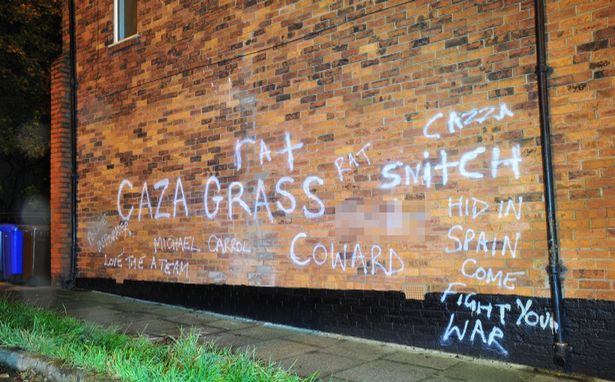 CAZZA
rat
RAT
SNITCH
CAZA GRASS
HID IN
SPAIN
COME
FIGHT YOUR
WAR
COWARD
MICHAEL CARROL
INFORMER
LOVE THE A TEAM